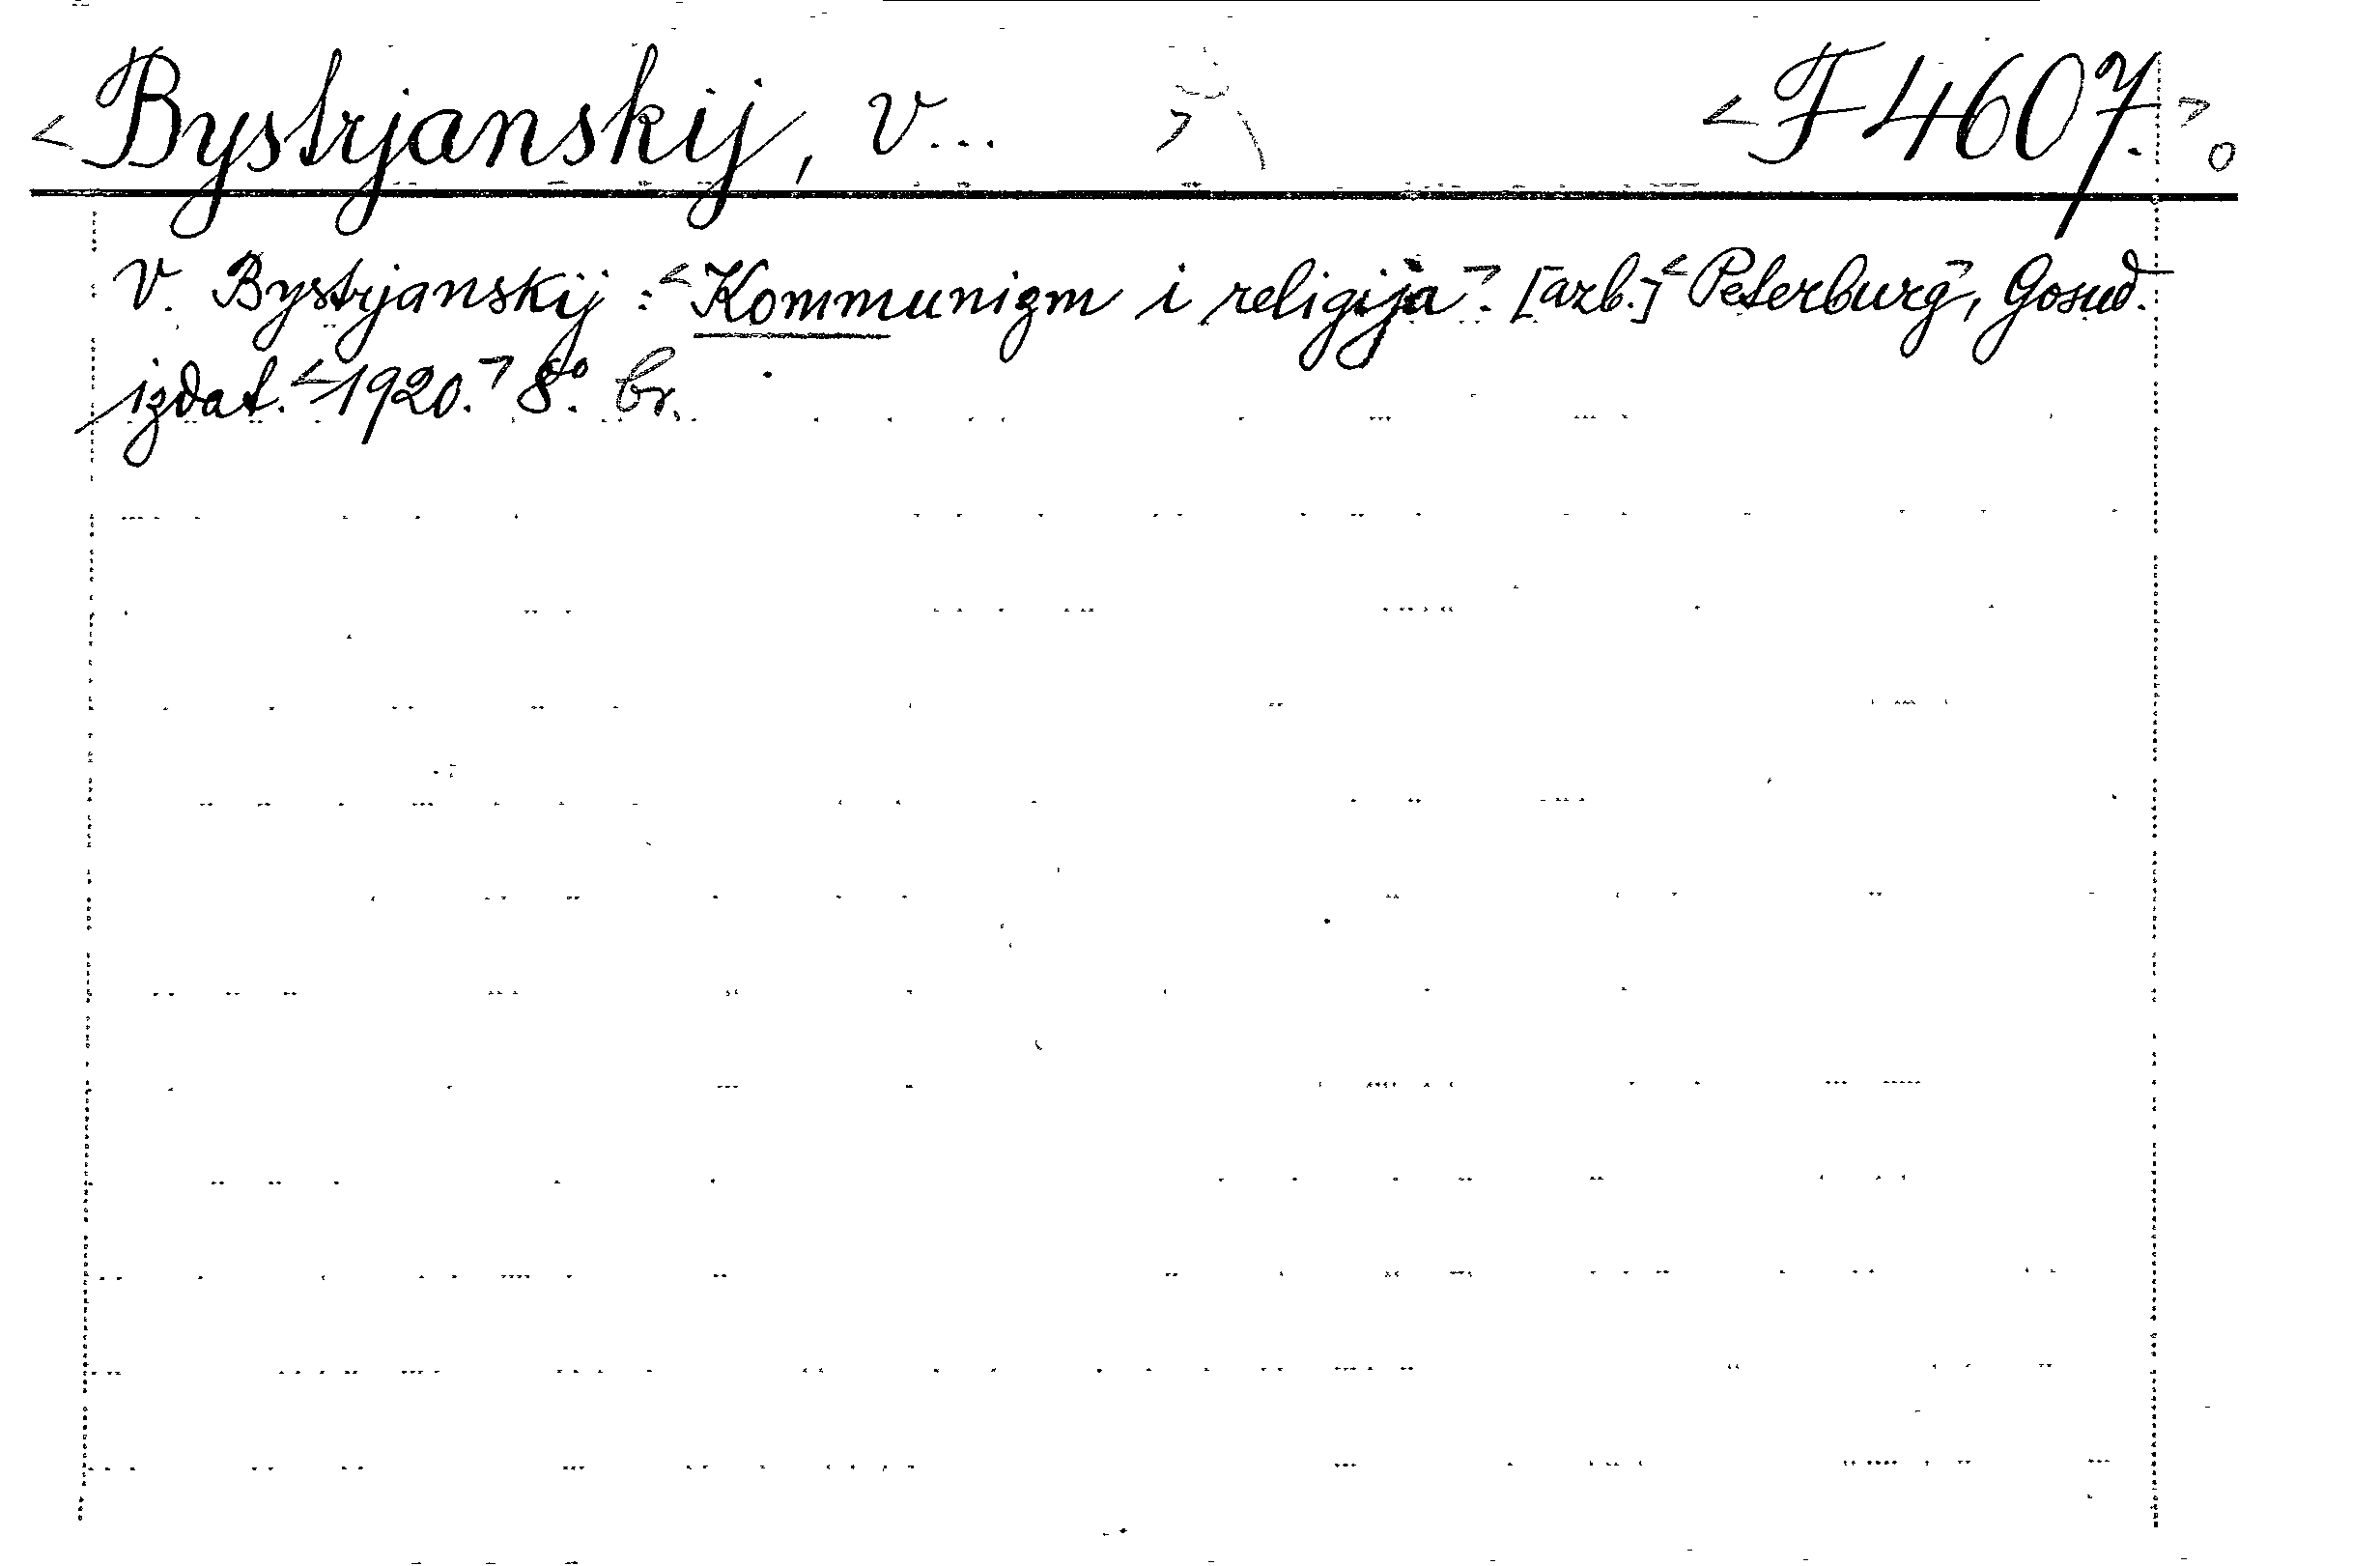 <Bystrjanskij, V... > <F 4607.> o
V. Bystrjanskij: <Kommunizm i religija>. [azb.] <Peterburg>, Gosud.
izdat. <1920.> 8º. br.